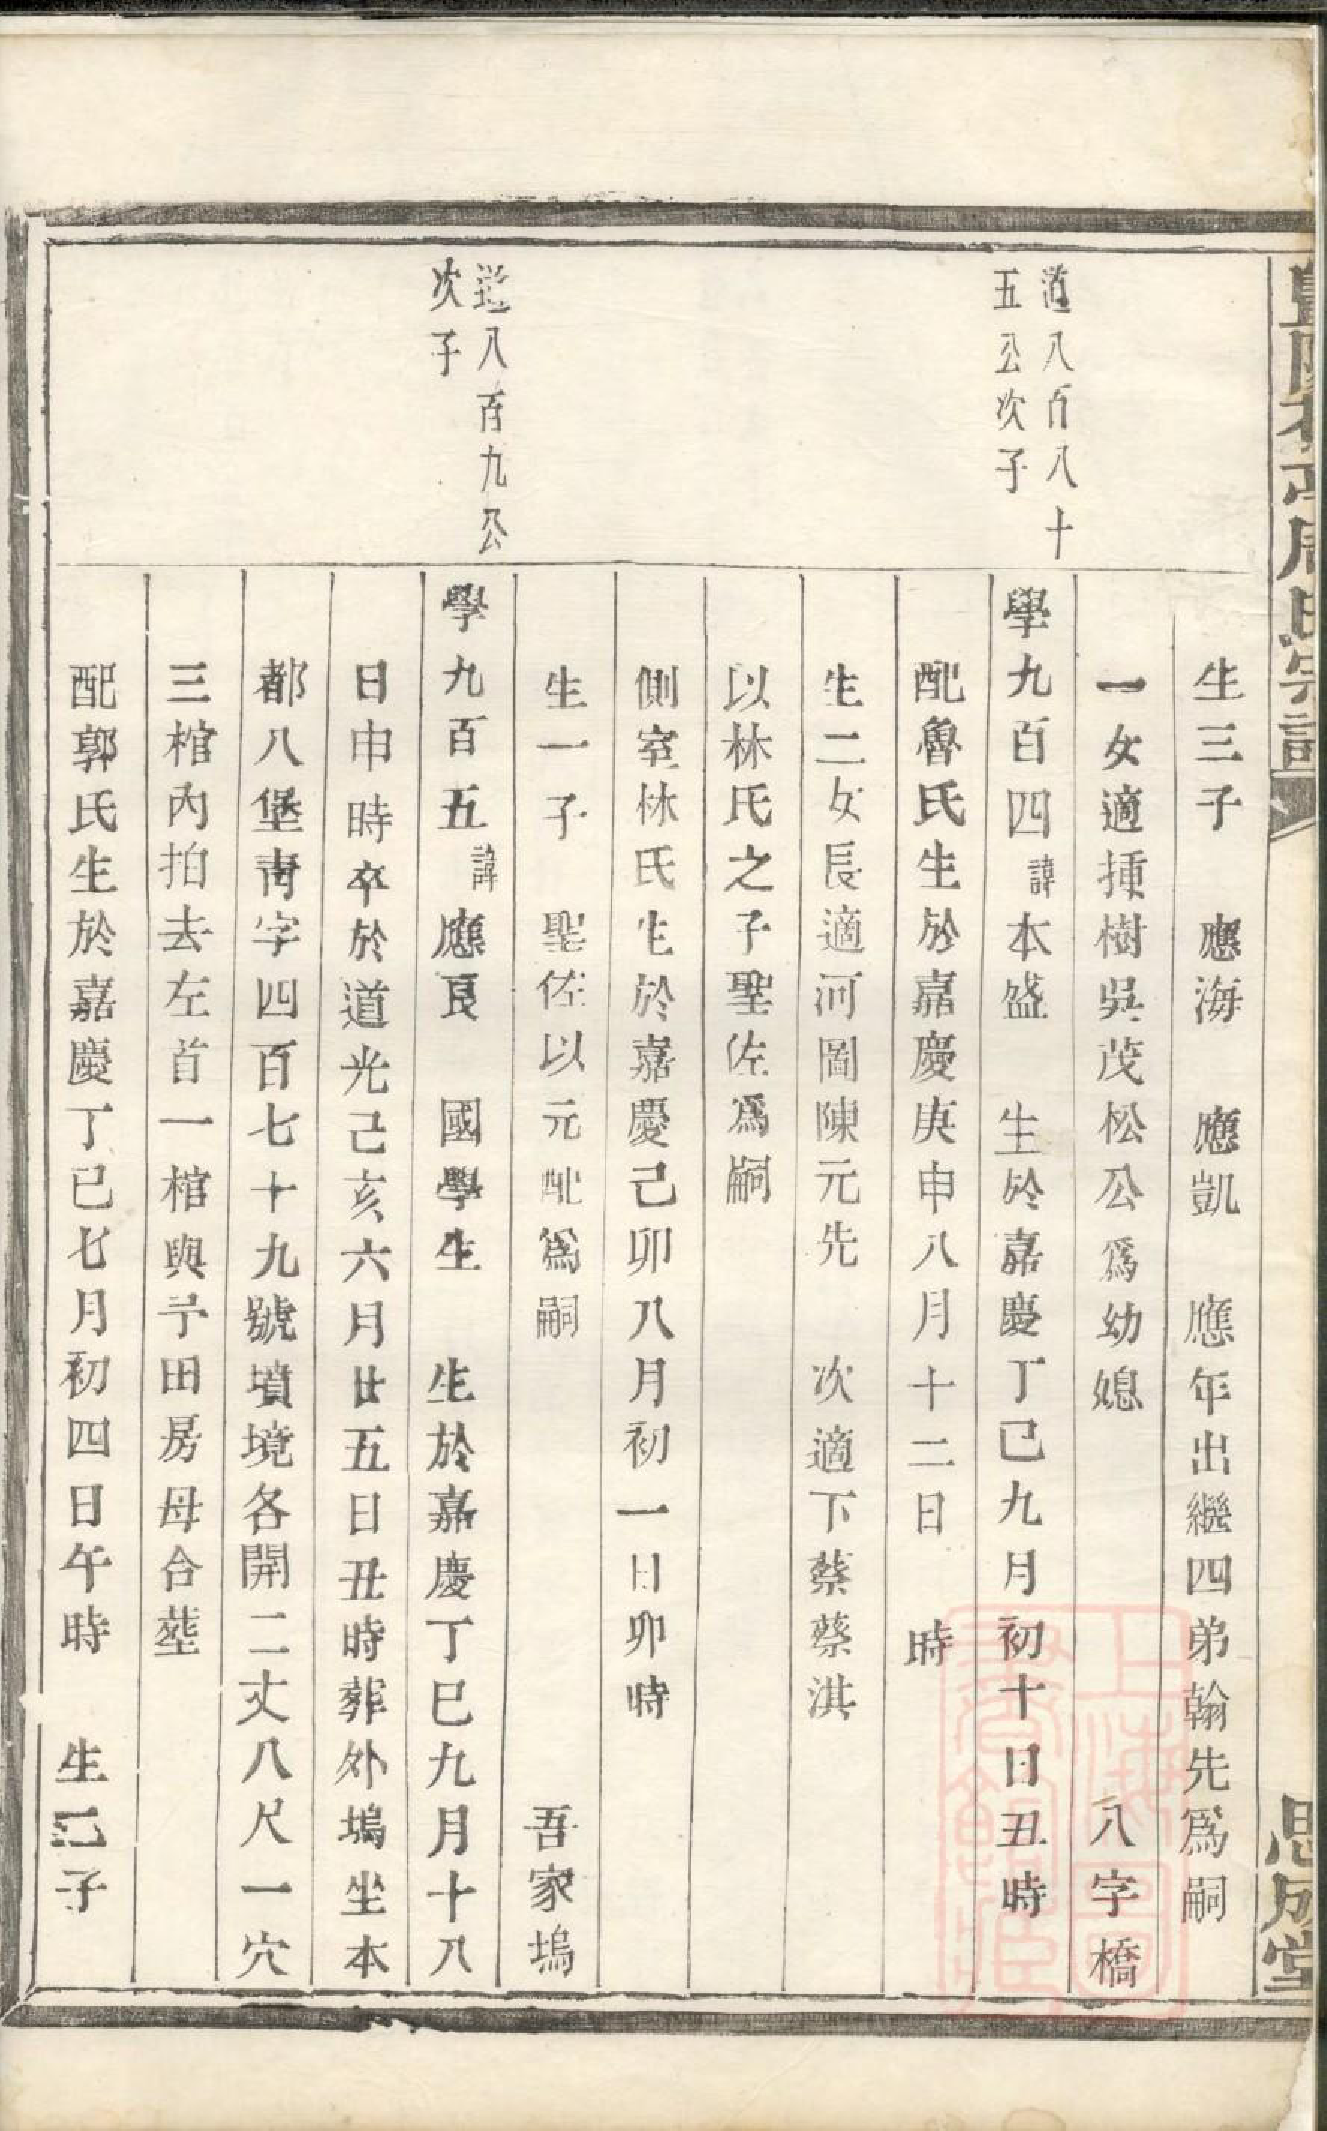 周氏宗譜
思成堂
生三子 應海 應凱 應年出繼四弟翰先爲嗣
一女適揰樹吳茂松公爲幼媳 八字橋
道八百八十
五公次子
學九百四諱本盛 生於嘉慶丁巳九月初十日丑時
配魯氏生於嘉慶庚申八月十二日 時
生二女長適河圖陳元先 次適下蔡蔡淇
以林氏之子聖佐爲嗣
側室林氏生於嘉慶己卯八月初一日卯時
生一子 聖佐以元配爲嗣 吾家塢
八百九公
次子
學九百五諱應良 國學生 生於嘉慶丁巳九月十八
日申時卒於道光己亥六月廿五日丑時葬外塢坐本
都八堡靑字四百七十九號墳境各開二丈八尺一穴
三棺內拍去左首一棺與亍田房母合塟
配郭氏生於嘉慶丁巳七月初四日午時 生二子
上海圖書館藏